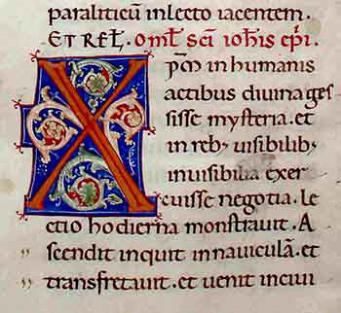 paraliticū inlecto iacentem.
ET REL̄. Om̄L scī ioh̄is ep̄i.
X p̄m in humanis
actibus diuina ges
sisse mysteria. et
in reb; uisibilib;
inuisibilia exer
cuisse negotia. Le
ctio hodierna monstrauit. A
scendit inquit in nauiculā. et
transfretauit. et uenit in ciui